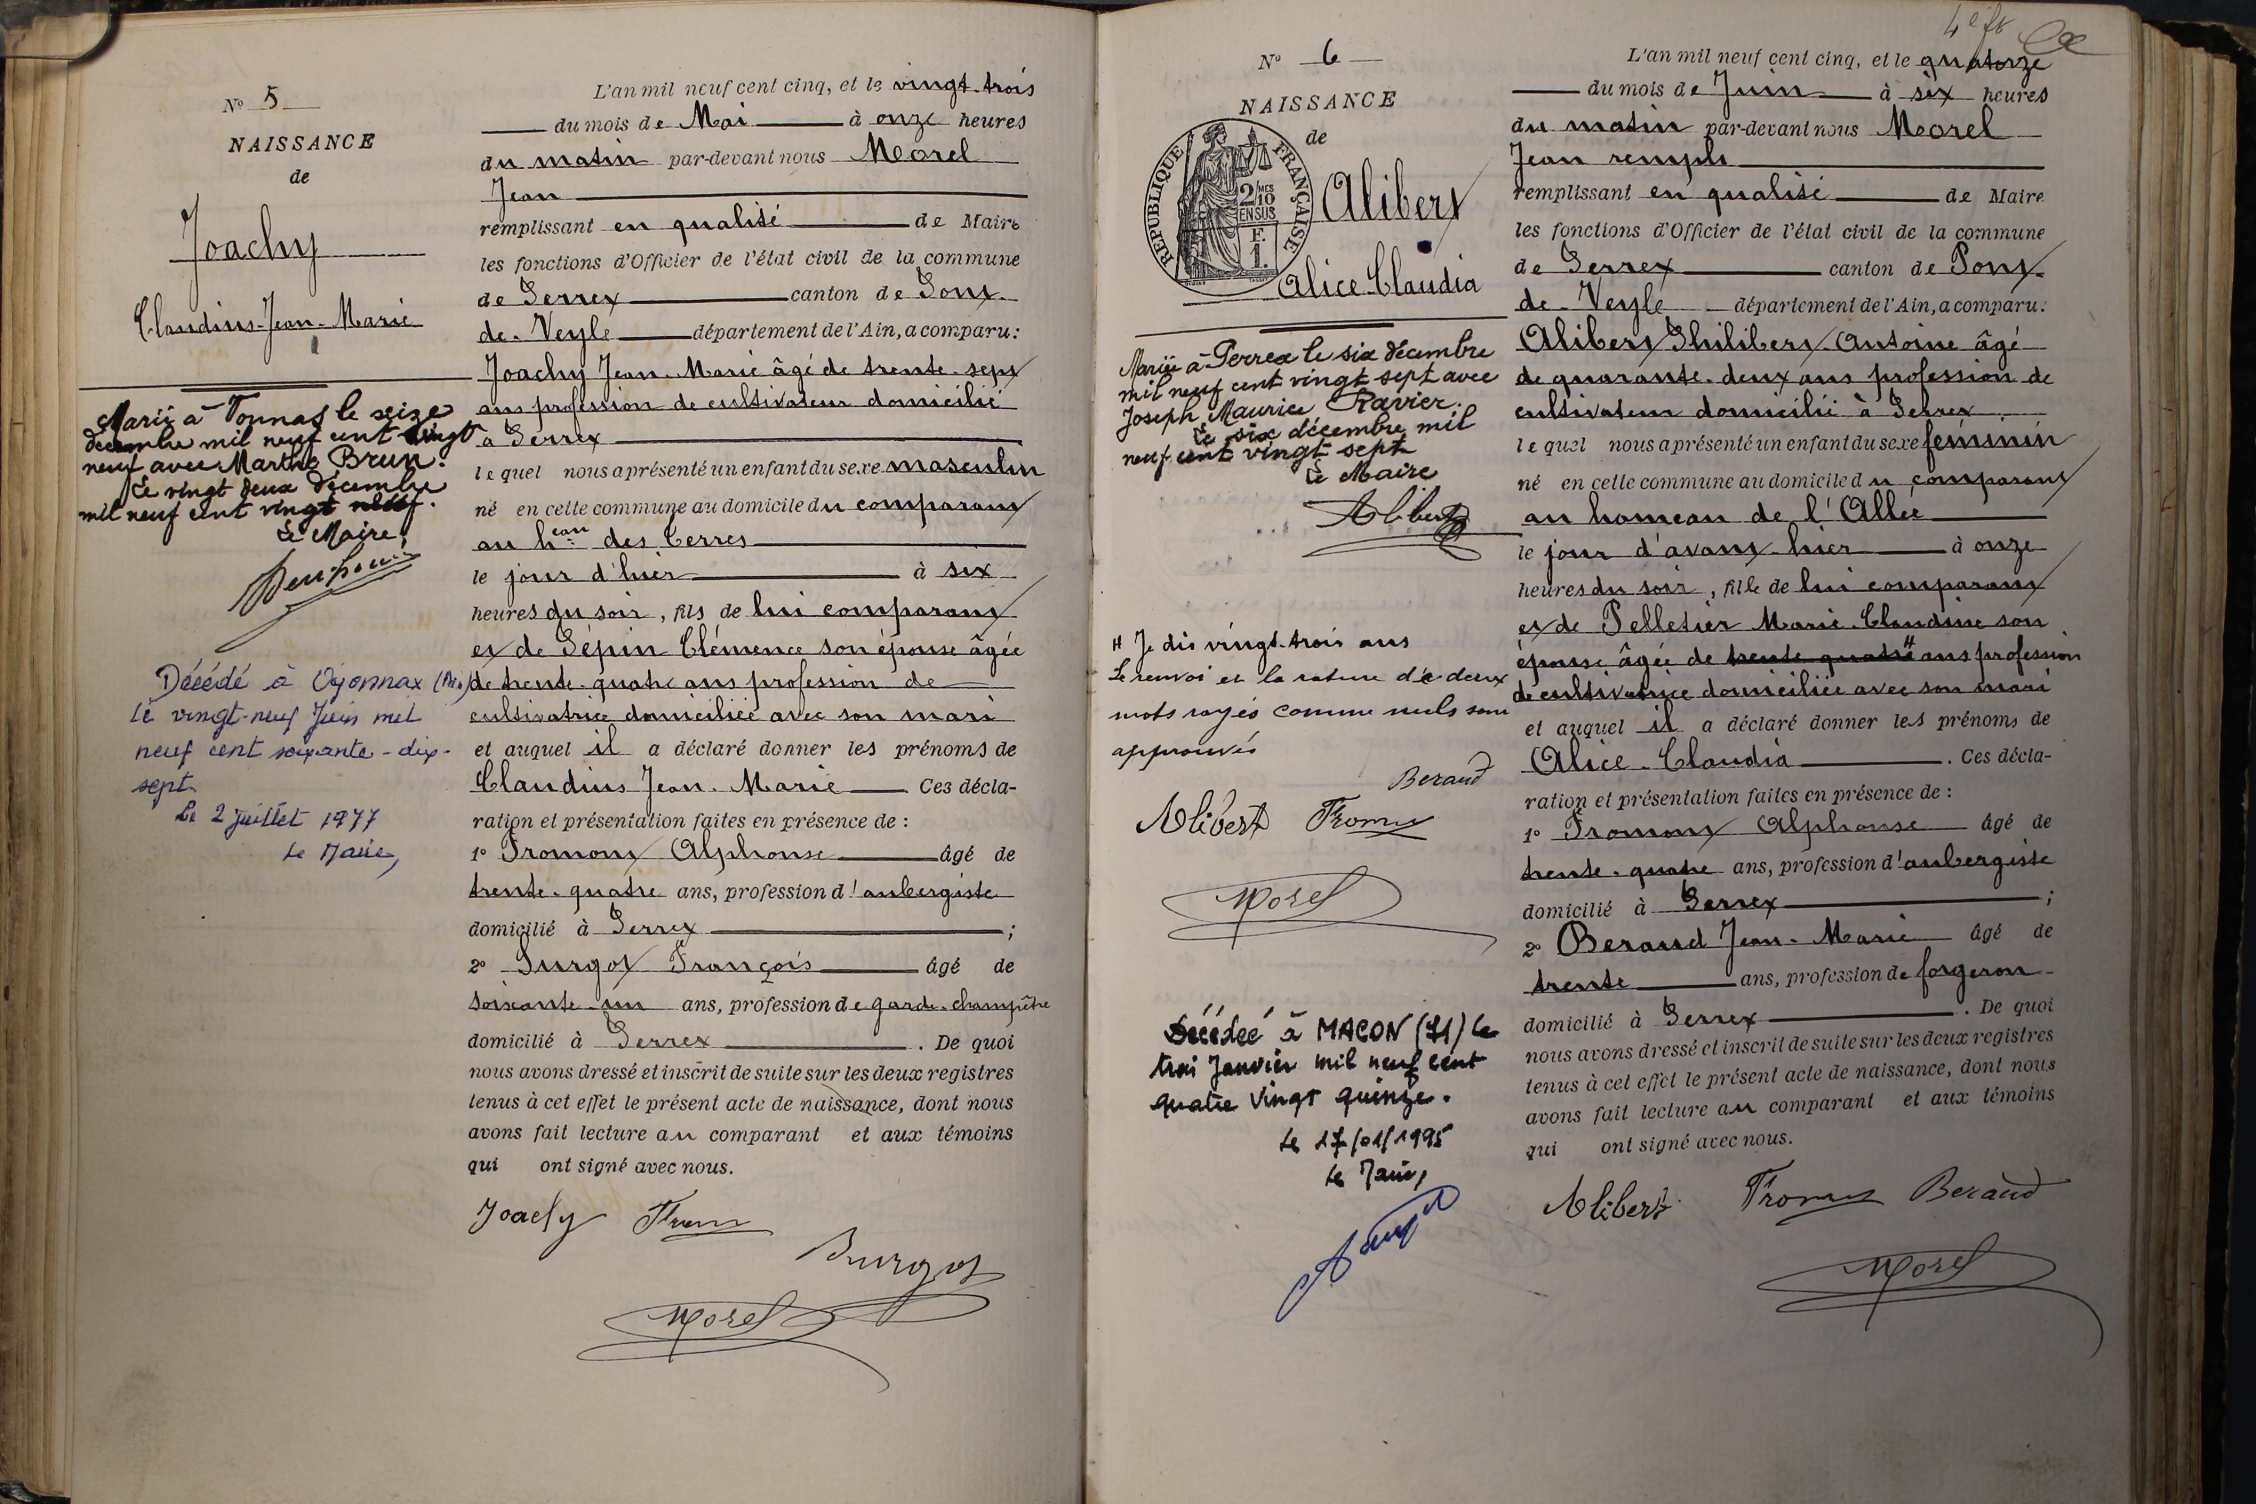 N° 5
NAISSANCE
de
Joachy
Claudius-Jean-Marie
Marié à Vonnas le seize
décembre mil neuf cent vingt
neuf avec Marthe Brun.
Le vingt deux décembre
mil neuf cent vingt neuf.
Le Maire,
Décédé à Oyonnax (Ain)
le vingt-neuf Juin mil
neuf cent soixante-dix-
sept
Le 2 juillet 1977
Le Maire,
L'an mil neuf cent cinq, et le vingt-trois
du mois de Mai à onze heures
du matin par-devant nous Morel
Jean
remplissant en qualité de Maire
les fonctions d'Officier de l'état civil de la commune
de Perrex canton de Pont-
de-Veyle département de l'Ain, a comparu:
Joachy Jean-Marie âgé de trente-sept
ans profession de cultivateur domicilié
à Perrex
lequel nous a présenté un enfant du sexe masculin
né en cette commune au domicile du comparant
au heau des Terres
le jour d'hier à six
heures du soir, fils de lui comparant
et de Pépin Clémence son épouse âgée
de trente-quatre ans profession de
cultivatrice domiciliée avec son mari
et auquel il a déclaré donner les prénoms de
Claudius Jean-Marie Ces décla-
ration et présentation faites en présence de :
1° Fromont Alphonse âgé de
trente-quatre ans, profession d'aubergiste
domicilié à Perrex ;
2° Burgot François âgé de
soixante-un ans, profession de garde-champêtre
domicilié à Perrex . De quoi
nous avons dressé et inscrit de suite sur les deux registres
tenus à cet effet le présent acte de naissance, dont nous
avons fait lecture au comparant et aux témoins
qui ont signé avec nous.
Joachy
Burgot
Morel
N° 6
NAISSANCE
de
RÉPUBLIQUE FRANÇAISE
2/10 MES
EN SUS
F.
1.
Alibert
Alice Claudia
Mariée à Perrex le six décembre
mil neuf cent vingt sept avec
Joseph Maurice Ravier.
Le six décembre mil
neuf cent vingt sept
Le Maire
Alibert
# Je dis vingt-trois ans
Le renvoi et la rature de deux
mots rayés comme nuls sont
approuvés
Beraud
Alibert Fromont
Morel
Décédée à MACON (71) le
troi Janvier mil neuf cent
quatre vingt quinze.
Le 17/01/1995
Le Maire,
L'an mil neuf cent cinq, et le quatorze
du mois de Juin à six heures
du matin par-devant nous Morel
Jean rempls
remplissant en qualité de Maire
les fonctions d'Officier de l'état civil de la commune
de Perrex canton de Pont-
de-Veyle département de l'Ain, a comparu:
Alibert Philibert Antoine âgé
de quarante-deux ans profession de
cultivateur domicilié à Perrex
lequel nous a présenté un enfant du sexe féminin
né en cette commune au domicile du comparant
au hameau de l'Allée
le jour d'avant-hier à onze
heures du soir, fille de lui comparant
et de Pelletier Marie-Claudine son
épouse âgée de trente quatre # ans profession
de cultivatrice domiciliée avec son mari
et auquel il a déclaré donner les prénoms de
Alice-Claudia . Ces décla-
ration et présentation faites en présence de :
1° Fromont Alphonse âgé de
trente-quatre ans, profession d'aubergiste
domicilié à Perrex ;
2° Beraud Jean-Marie âgé de
trente ans, profession de forgeron
domicilié à Perrex . De quoi
nous avons dressé et inscrit de suite sur les deux registres
tenus à cet effet le présent acte de naissance, dont nous
avons fait lecture au comparant et aux témoins
qui ont signé avec nous.
Alibert Fromont Beraud
Morel